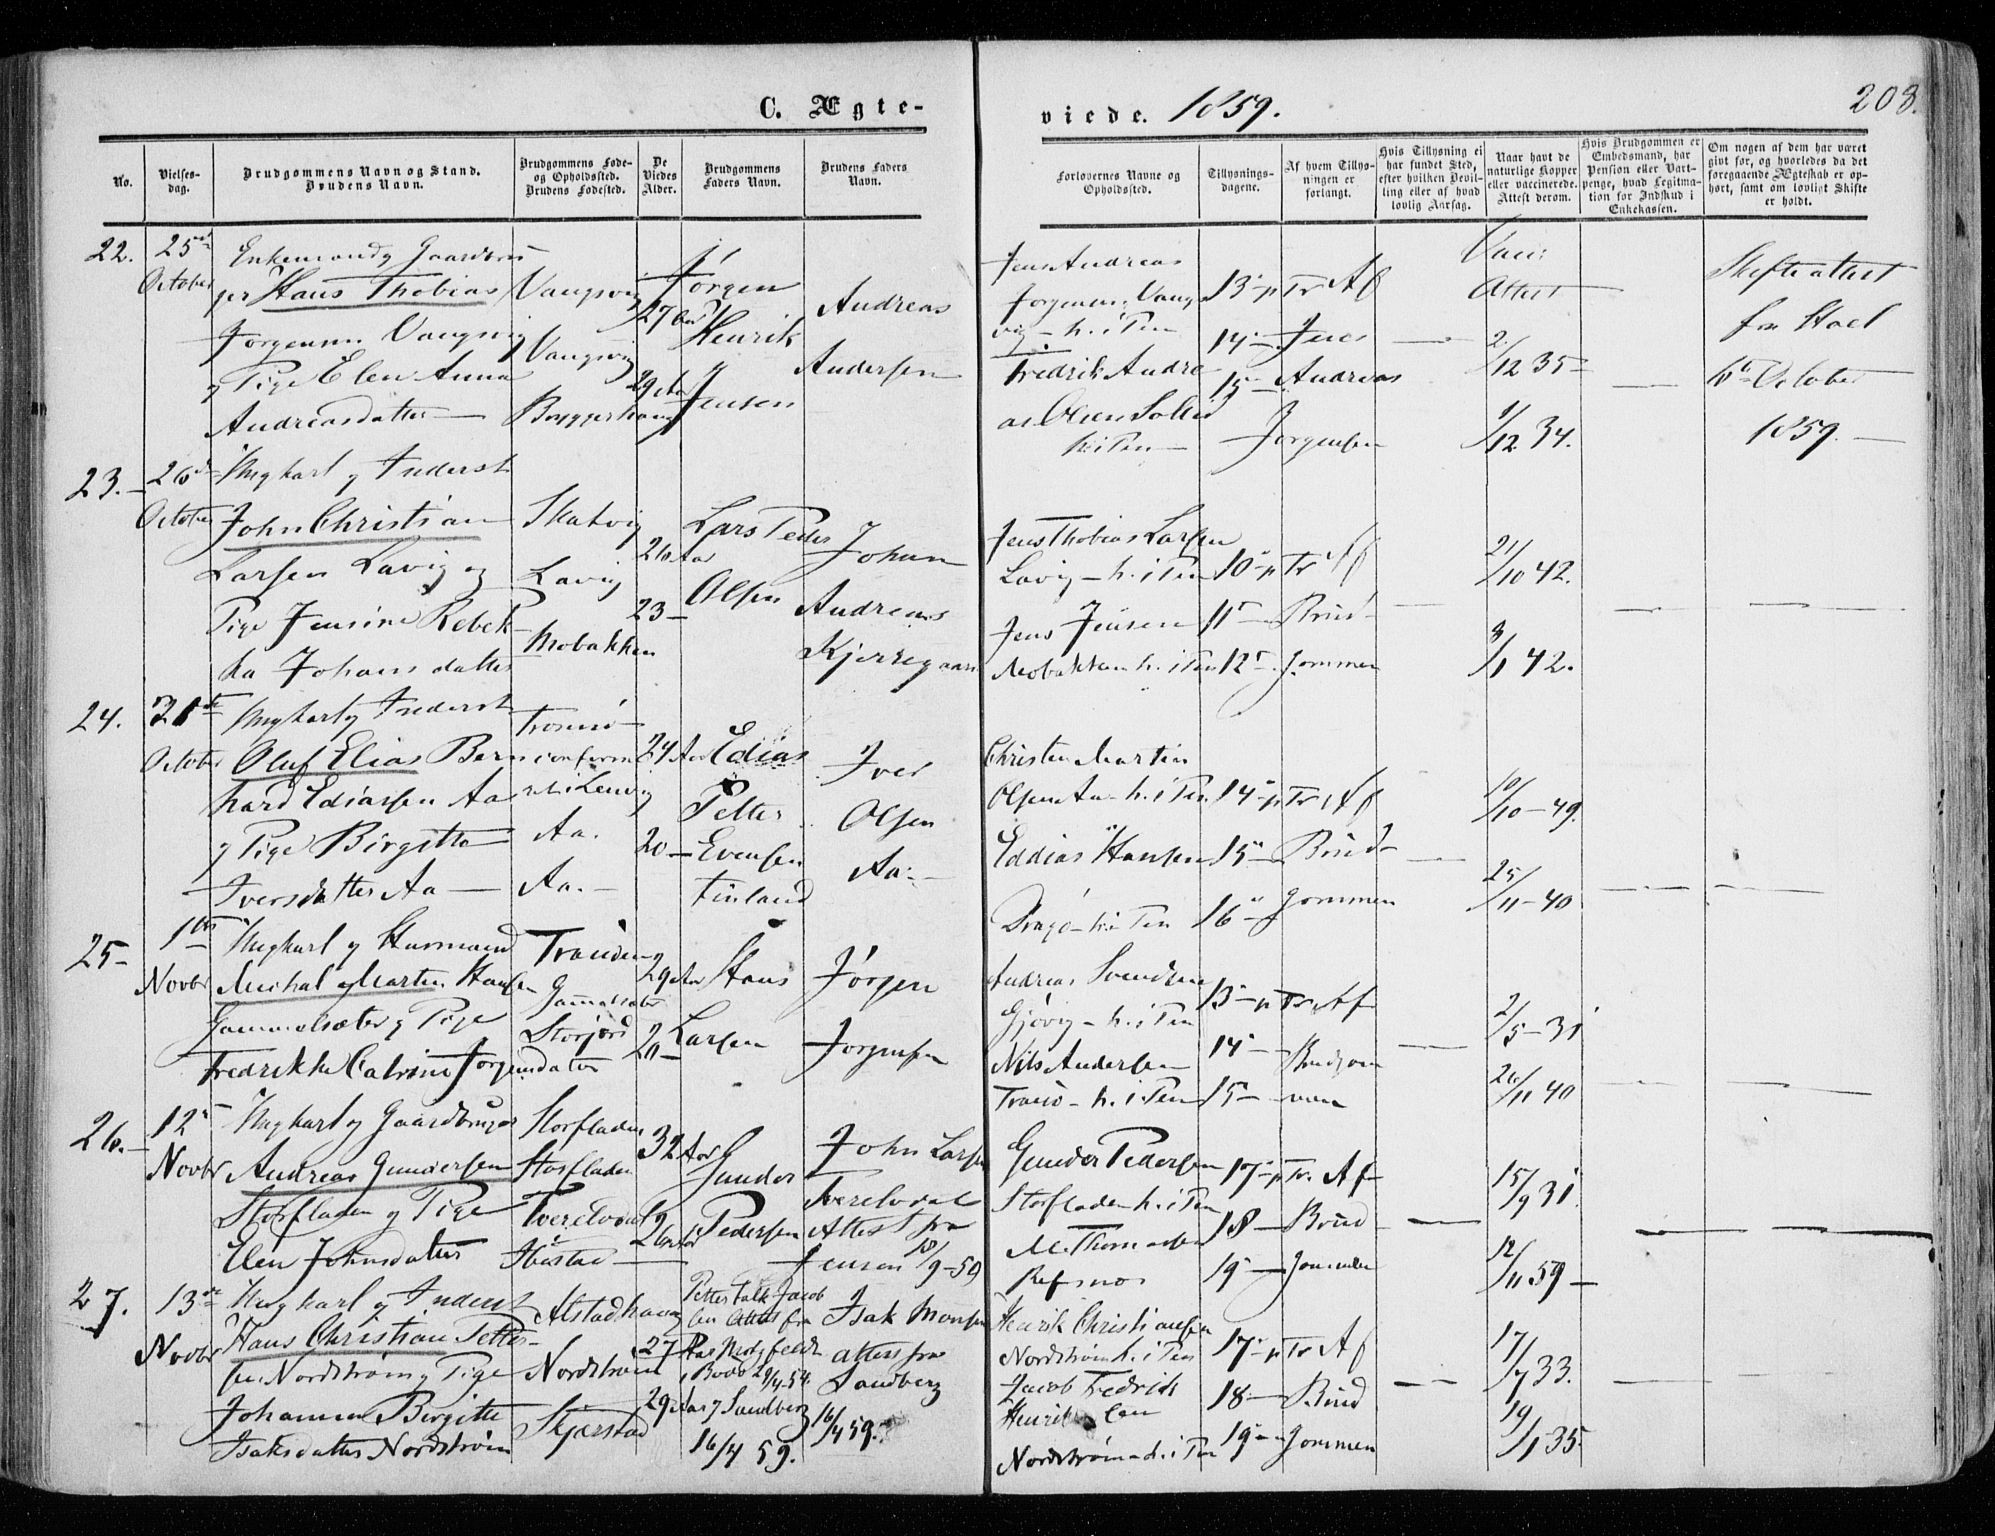 C. Ægte-
viede. 1859.
208.
No.
Vielses-
dag.
Brudgommens Navn og Stand.
Brudens Navn.
Brudgommens Føde-
og Opholdssted.
Brudens Fødested.
De
Viedes
Alder.
Brudgommens
Faders Navn.
Brudens Faders
Navn.
Forlovernes Navne og
Opholdssted.
Tillysnings-
dagene.
Af hvem Tillys-
ningen er
forlangt.
Hvis Tillysning ei
har fundet Sted,
efter hvilken Bevil-
ling eller af hvad
lovlig Aarsag.
Naar havt de
naturlige Kopper
eller vaccinerede.
Attest derom.
Hvis Brudgommen er
Embedsmand, har
Pension eller Vart-
penge, hvad Legitima-
tion for Indskud i
Enkekassen.
Om nogen af dem har været
gift før, og hvorledes da det
foregaaende Ægteskab er op-
hørt, samt om lovligt Skifte
er holdt.
22.
25de
October
Enkemand og Gaardbru
ger Hans Thobias
Jørgensen Vangsvig
og Pige Elen Anna
Andreasdatter
Vangsvig
Vangsvig
27 Aar
29 Aar
Jørgen
Henrik
Jensen
Andreas
Andersen
Jens Andreas
Jørgensen Vangs
vig - h. i Ten
Fredrik Andre
as Olsen
h. i Ten
13 - p Tr Af
14 - Jens
15 - Andreas
Jørgensen
Vacc:
Attest
2/12 35
1/12 34.
Skifteattest
fra
October
1859.
23.
26de
October
Ungkarl og Inderst
John Christian
Larsen Lavig og
Pige Jensine Rebek-
ka Johansdatter
Skatvig
Lavig
Mobakken
26 Aar
23
Lars Peder
Olsen
Johan
Andreas
Kjerregaard
Jens Thobias Larsen
Lavig - h. i Ten
Jens Jensen
Mobakken h. i Ten
10 - p Tr Af
11 - Brud-
12 - gommen
21/10 42.
3/1 42.
24.
31te
October
Ungkarl og Inderst
Oluf Elias Bern
hard Ediassen Aa
og Pige Birgitte
Iversdatter Aa
Tromsø
confirme
ret i Lenvig
Aa.
Aa.
24 Aar
20
Edias
Petter
Evensen
Finland
Iver
Olsen
Aa.
Christen Martin
Olsen Aa - h. i Ten
Eddias Hansen
h. i Ten
14 - p Tr Af
15 - Brud-
16 gommen
10/10 - 49.
25/11 - 40
25
1ste
Novbr
Ungkarl og Husmand
Mikal Martin Hansen
Gammelsæter og Pige
Fredrikke Catrine Jørgensdatter
Tranøen
Gammelsæter
Storjord
29 Aar
20
Hans
Larsen
Jørgen
Jørgensen
Andreas Svendsen
Gjøvig - h. i Ten
Nils Andersen
Tranø - h. i Ten
13 - p Tr. Af
14 - Brudgom
15 - men
2/5 - 31
26/11 40
26.
12te
Novbr
Ungkarl og Gaardbruger
Andreas Gundersen
Storfladen og Pige
Elen Johnsdatter
Storfladen
Storfladen
Tverelvdal
Ibestad
32 Aar
26 Aar
Gunder
Pedersen
John Larsen
Tverelvdal
Attest fra
Jensen 18/9 - 59
Gunder Pedersen
Storfladen h. i Ten
M. Thomassen
Refsnes
17 - p Tr. Af
18 - Brud
19 - gommen
15/9 31.
12/11 59
27.
13de
Novbr
Ungkarl og Inderst
Hans Christian Petter-
sen Nordstrøm og Pige
Johanna Birgitte
Isaksdatter Nordstrøm
Alstadhaug
Nordstrøm
Skjerstad
27
29 Aar
Petter Falk Jacob
sen Attest fra
i Bodø 29/4 54.
og Sandberg
16/4 59.
Isak Monsen
attest fra
Sandberg
16/4 59.
Henrik Christiansen
Nordstrøm h. i Ten
Jacob Fredrik
Henriksen
Nordstrøm - h. i Ten
17 - p Tr Af
18 - Brud
19 - gommen
17/7 33.
19/1 35